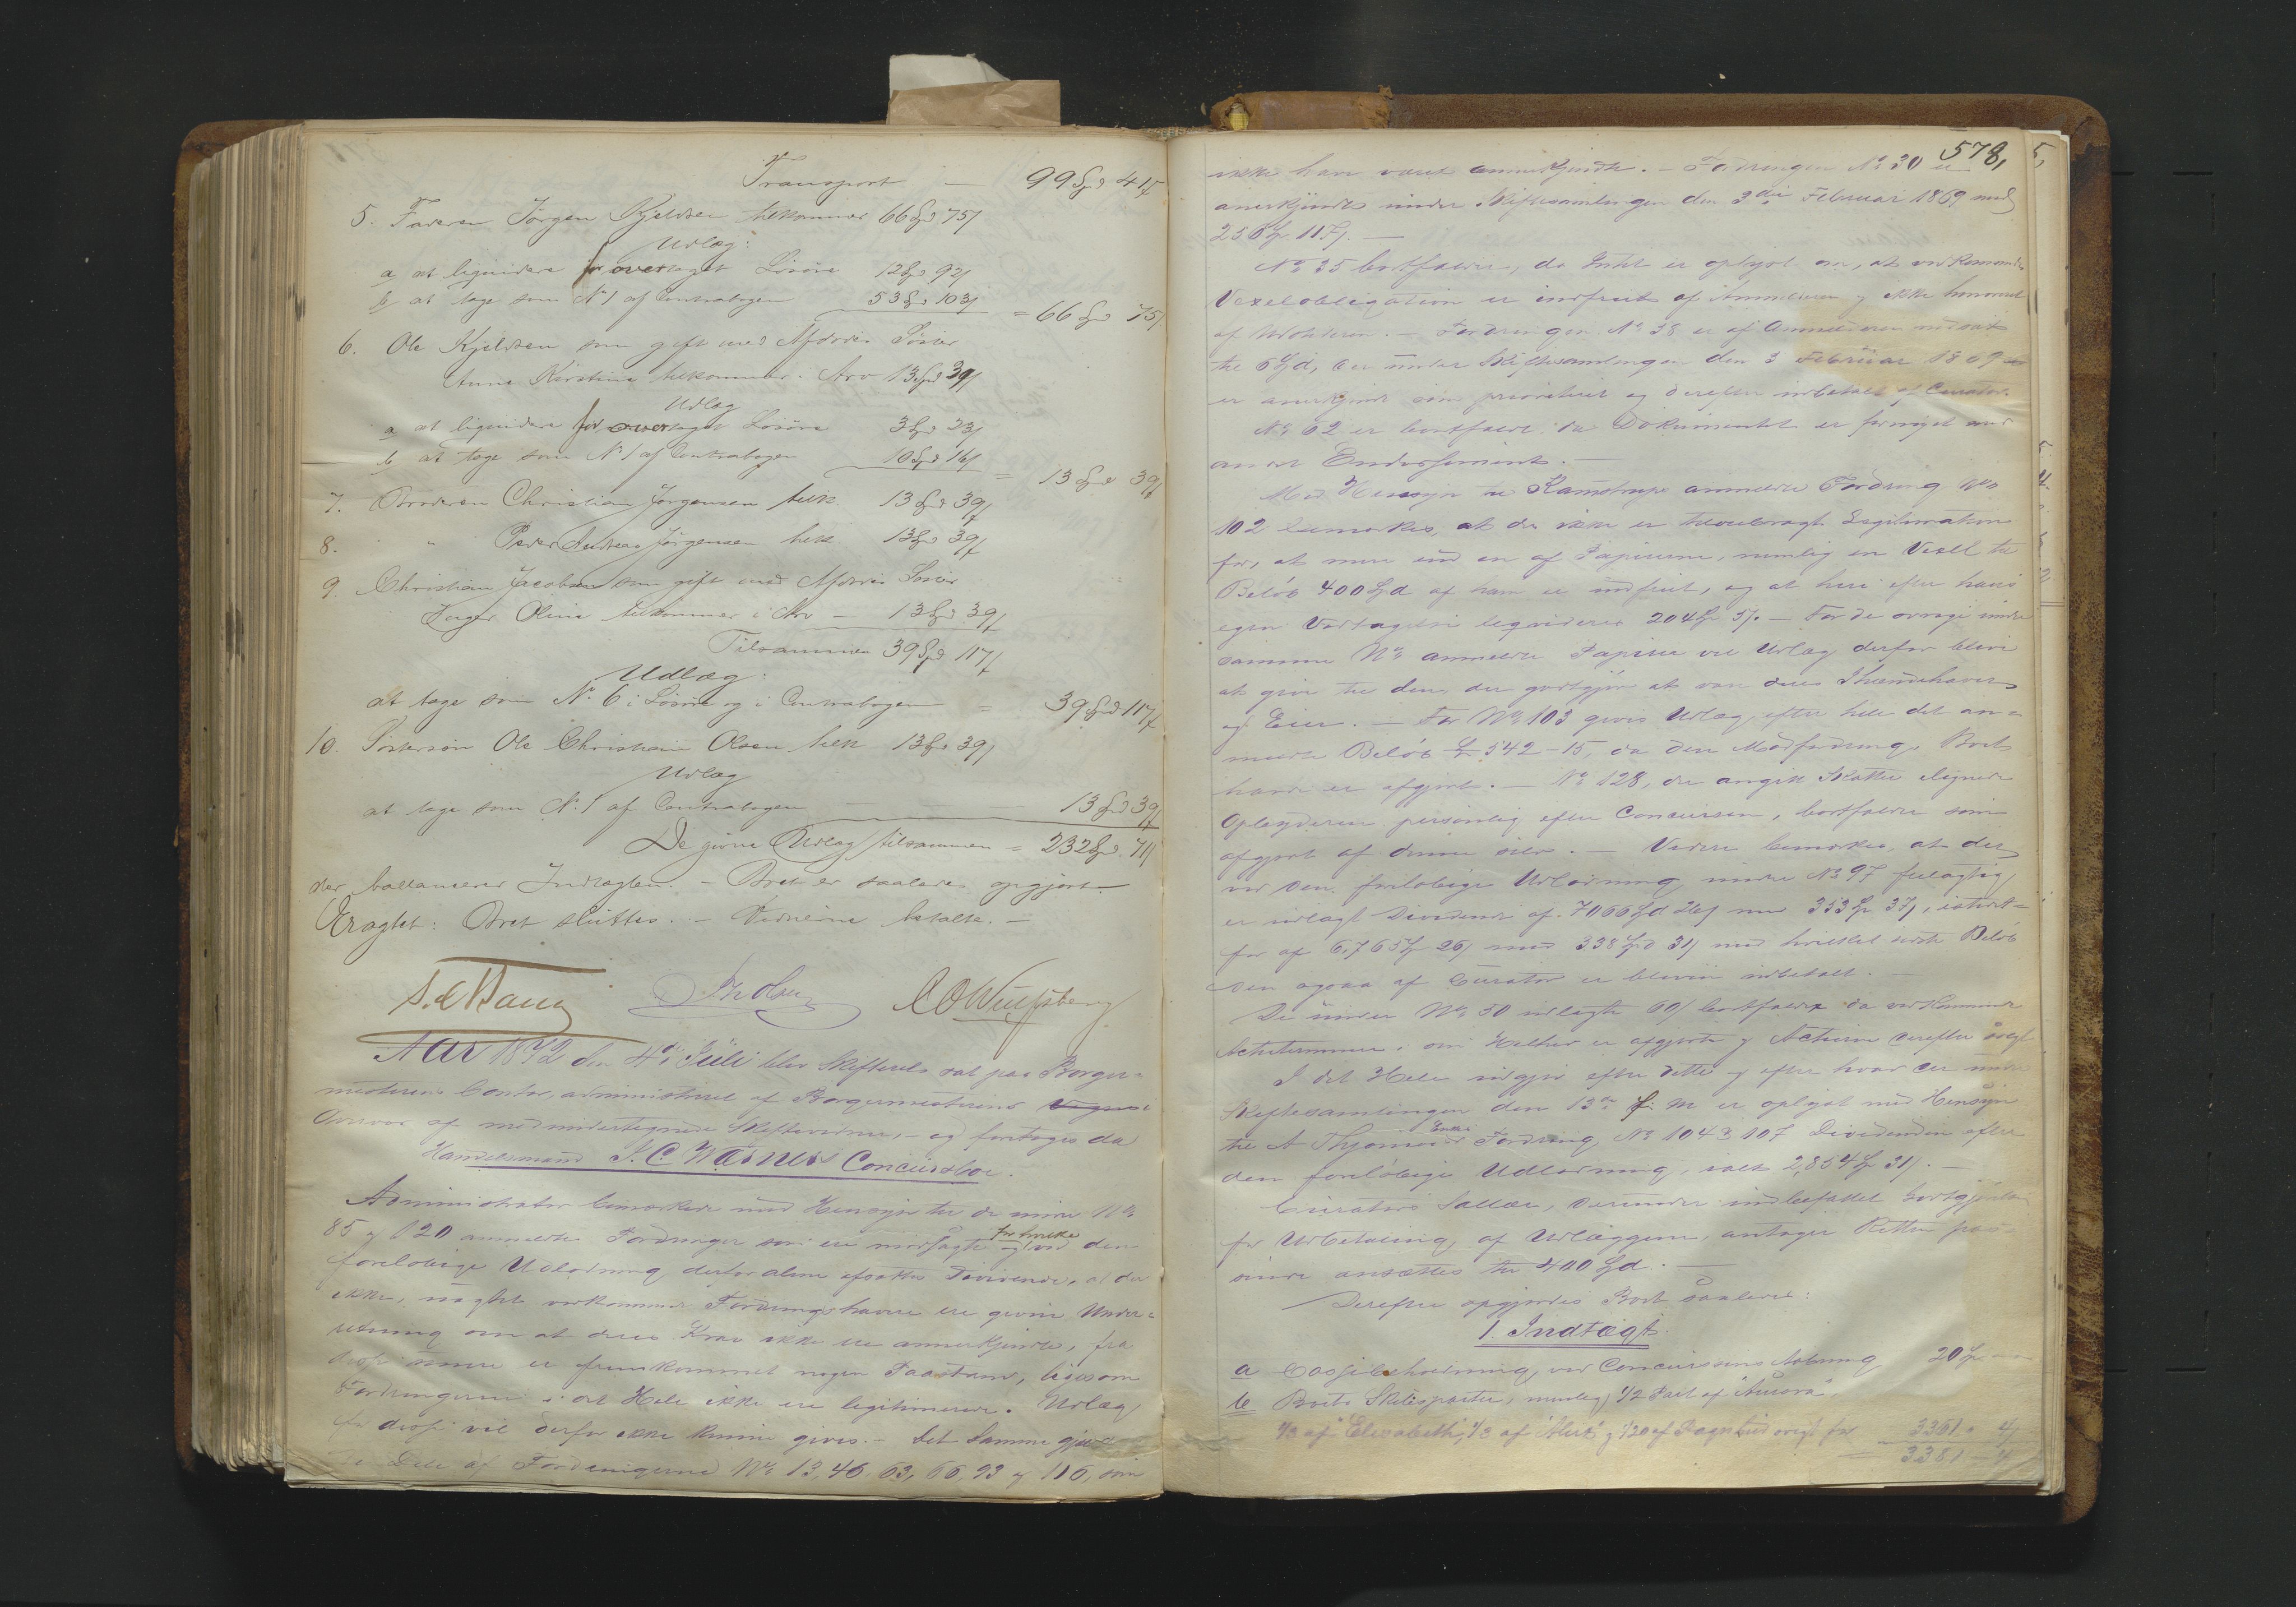 Transport — 99 Spd 41 ß
5. Faderen Jørgen Kjeldsen tilkommer 66 Spd 75 ß
Udlæg:
a at liquidere for overtaget Løsøre 12 Spd 92 ß
b at tage som No 1 af Contrabogen 53 Spd 103 ß = 66 Spd 75 ß
6. Ole Kjeldsen som gift med Afdødes Søster
Anne Kirstine tilkommer i Arv 13 Spd 39 ß
Udlæg
a at liquidere for overtaget Løsøre 3 Spd 23 ß
b at tage som No 1 af Contrabogen 10 Spd 16 ß = 13 Spd 39 ß
7. Broderen Christian Jørgensen tilk. 13 Spd 39 ß
8. " Peder Andreas Jørgensen tilk. 13 Spd 39 ß
9. Christian Jacobsen som gift med Afdødes Søster
Inger Oline tilkommer i Arv — 13 Spd 39 ß
Tilsammen 39 Spd 117 ß
Udlæg:
at tage som No. 6 i Løsøre og i Contrabogen = 39 Spd 117 ß
10. Søstersøn Ole Christian Olsen tilk. 13 Spd 39 ß
Udlæg
at tage som No. 1 af Contrabogen — 13 Spd 39 ß
De givne Udlæg tilsammen = 232 Spd. 71 ß
der ballancerer Indtægten. — Boet er saaledes opgjort.
Eragtet: Boet sluttes. — Vidnerne betalte. —
Aar 1872 den 4de Juli blev Skifteret sat paa Borger-
mesterens Contor, administreret af Borgermesterens
Overvær af medundertegnede Skiftevidner, — og foretoges da
Handelsmand J. C. Warners Concursboe.
Administrator bemærkede med Hensyn til de under No
85 og 120 anmeldte Fordringer som ere modsagte og for hvilke ved den
foreløbige Udlodning derfor alene afsattes Dividende, at der
ikke, uagtet vedkommende Fordringshavere ere givne Under-
retning om at deres Krav ikke ere annerkjendte, fra
disse er fremkommet nogen Paastand, ligesom
Fordringerne i det Hele ikke ere legitimerede. Udlæg
for disse vil derfor ikke kunne gives. — Det Samme gjælder
De Dele af Fordringerne No 13, 46, 63, 66, 93 og 116, som
578,
ikke have været annerkjendte. — Fordringen No 30 er
anerkjendt under Skiftesamlingen den 3die Februar 1869 med
256 Sp. 117 ß. —
No 35 bortfalder, da Intet er oplyst om, at vedkommende
Vexelobligation er indfriet af Anmelderen og ikke honoreret
af Udstederen. — Fordringen No 38 er af Anmelderen nedsat
til 6 Spd, der under Skiftesamlingen den 3 Februar 1869
er anerkjendt som prioriteret og derefter udbetalt af Curator.
No 62 er bortfaldt da Dokumentet er fornyet med
andet Endossement. —
Med Hensyn til Kamstrups anmeldte Fordring No
102 bemærkes, at der ikke er tilveiebragt Legitimation
for, at mere end en af Papirerne, nemlig en Vexel til
Beløb 400 Spd af ham er indfriet, og at heri efter hans
egen Vedtagelse liqvideres 204 Sp 5 ß. — For de øvrige under
samme No anmeldte Papirer vil Udlæg derfor blive
at give til den, der godtgjør at være deres Ihændehaver
og Eier. — For No 103 gives Udlæg efter hele det an-
meldte Beløb £ 542-15, da den Modfordring, Boet
havde er afgjort. — No 128, der angik Skatter lignede
Opbyderen personlig efter Concursen, bortfalder som
afgjort af denne selv. — Videre bemærkes, at der
ved den foreløbige Udlodning under No 97 feilagtig
er udlagt Dividende af 7066 Spd 26 ß med 353 Sp 37 ß, istedet-
for af 6,765 Sp 26 ß med 338 Spd 31 ß med hvilket sidste Beløb
den ogsaa af Curator er bleven udbetalt. —
De under No 50 udlagte 60 ß bortfalder da vedkommende
I det Hele udgjør efter dette og efter hvad der under
Skiftesamlingen den 13de f. M. er oplyst med Hensyn
til A Thjømøes Enkes Fordring, No 104 & 107 Dividenden efter
den foreløbige Udlodning, ialt 2,854 Sp 31 ß. —
Curators Sallær, derunder indbefattet Godtgjørelse
for Udbetaling af Udlæggene, antager Retten pas-
sende ansættes til 400 Spd. —
Derefter opgjordes Boet saaledes:
1. Indtægt.
a Cassebeholdning ved Concursens Aabning 20 Sp
b Boets Skibsparter, nemlig 1/2 Part af "Aurora",
1/3 af "Elisabeth", 1/3 af "Alert" og 1/20 af Ragnhild solgt for 3361 " 4 ß
3381 — 4